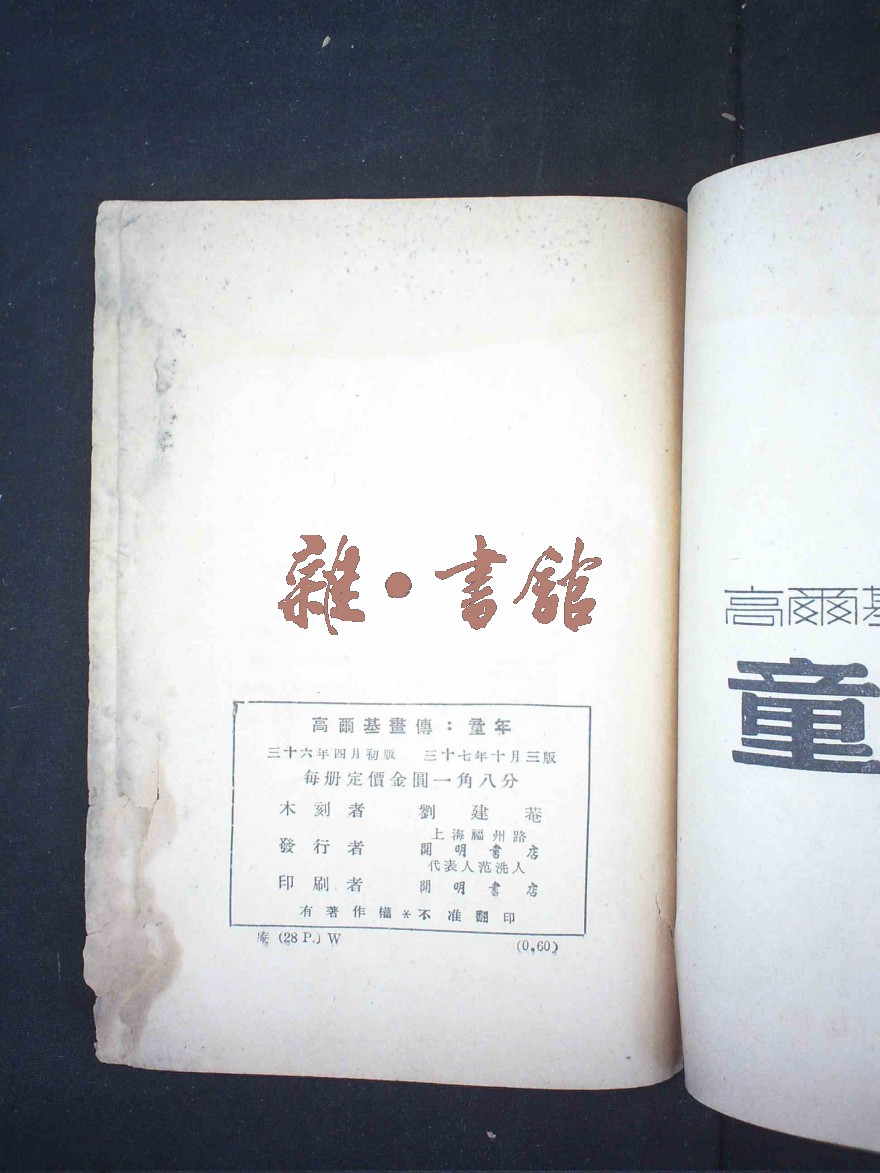 雜·書館
高爾基畫傳：童年
三十六年四月初版　三十七年十月三版
每册定價金圓一角八分
木刻者　劉建菴
發行者　上海福州路
開明書店
代表人范洗人
印刷者　開明書店
有著作權＊不准翻印
(28 P.) W　(0.60)
高爾基
童